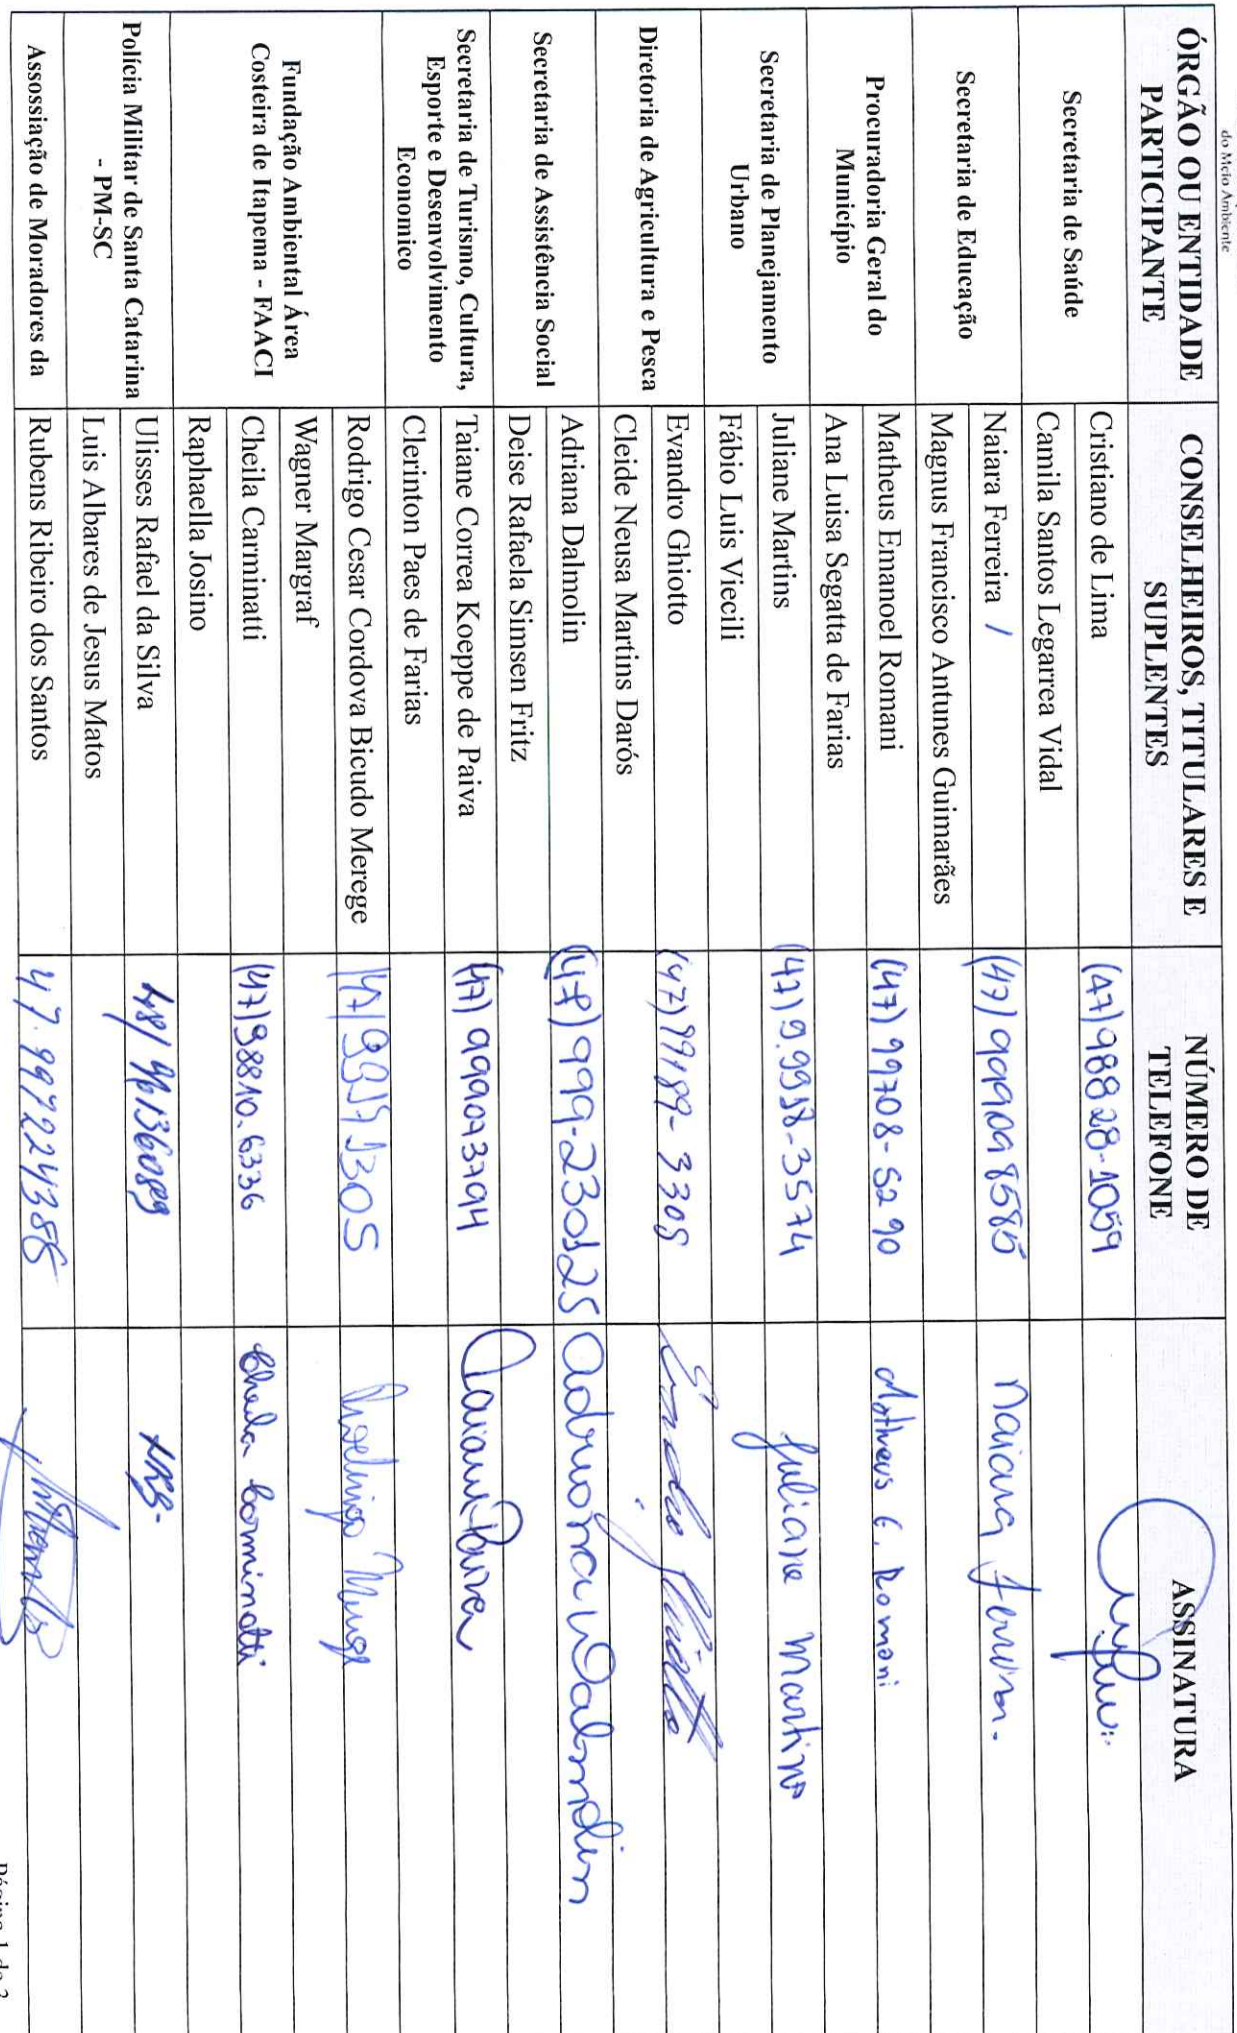 do Meio Ambiente
ÓRGÃO OU ENTIDADE PARTICIPANTE
CONSELHEIROS, TITULARES E SUPLENTES
NÚMERO DE TELEFONE
ASSINATURA
Secretaria de Saúde
Cristiano de Lima
(47) 98828-1059
Camila Santos Legarrea Vidal
Secretaria de Educação
Naiara Ferreira /
(47) 999098585
Naiara Ferreira.
Magnus Francisco Antunes Guimarães
Procuradoria Geral do
Município
Matheus Emanoel Romani
(47) 99708-5290
Matheus E. Romani
Ana Luisa Segatta de Farias
Secretaria de Planejamento
Urbano
Juliane Martins
(47) 9.9918-3574
Juliane Martins
Fábio Luis Viecili
Diretoria de Agricultura e Pesca
Evandro Ghiotto
(47) 99189-3305
Evandro Ghiotto
Cleide Neusa Martins Darós
Secretaria de Assistência Social
Adriana Dalmolin
(47) 999-230125
Adriana Dalmolin
Deise Rafaela Simsen Fritz
Secretaria de Turismo, Cultura,
Esporte e Desenvolvimento
Economico
Taiane Correa Koeppe de Paiva
(47) 999093794
Taiane Paiva
Clerinton Paes de Farias
Fundação Ambiental Área
Costeira de Itapema - FAACI
Rodrigo Cesar Cordova Bicudo Merege
Rodrigo Merege
Wagner Margraf
Cheila Carminatti
(47) 98810.6336
Cheila Carminatti
Raphaella Josino
Polícia Militar de Santa Catarina
- PM-SC
Ulisses Rafael da Silva
URS.
Luis Albares de Jesus Matos
Assossiação de Moradores da
Rubens Ribeiro dos Santos
47.997224388
Página 1 de 3